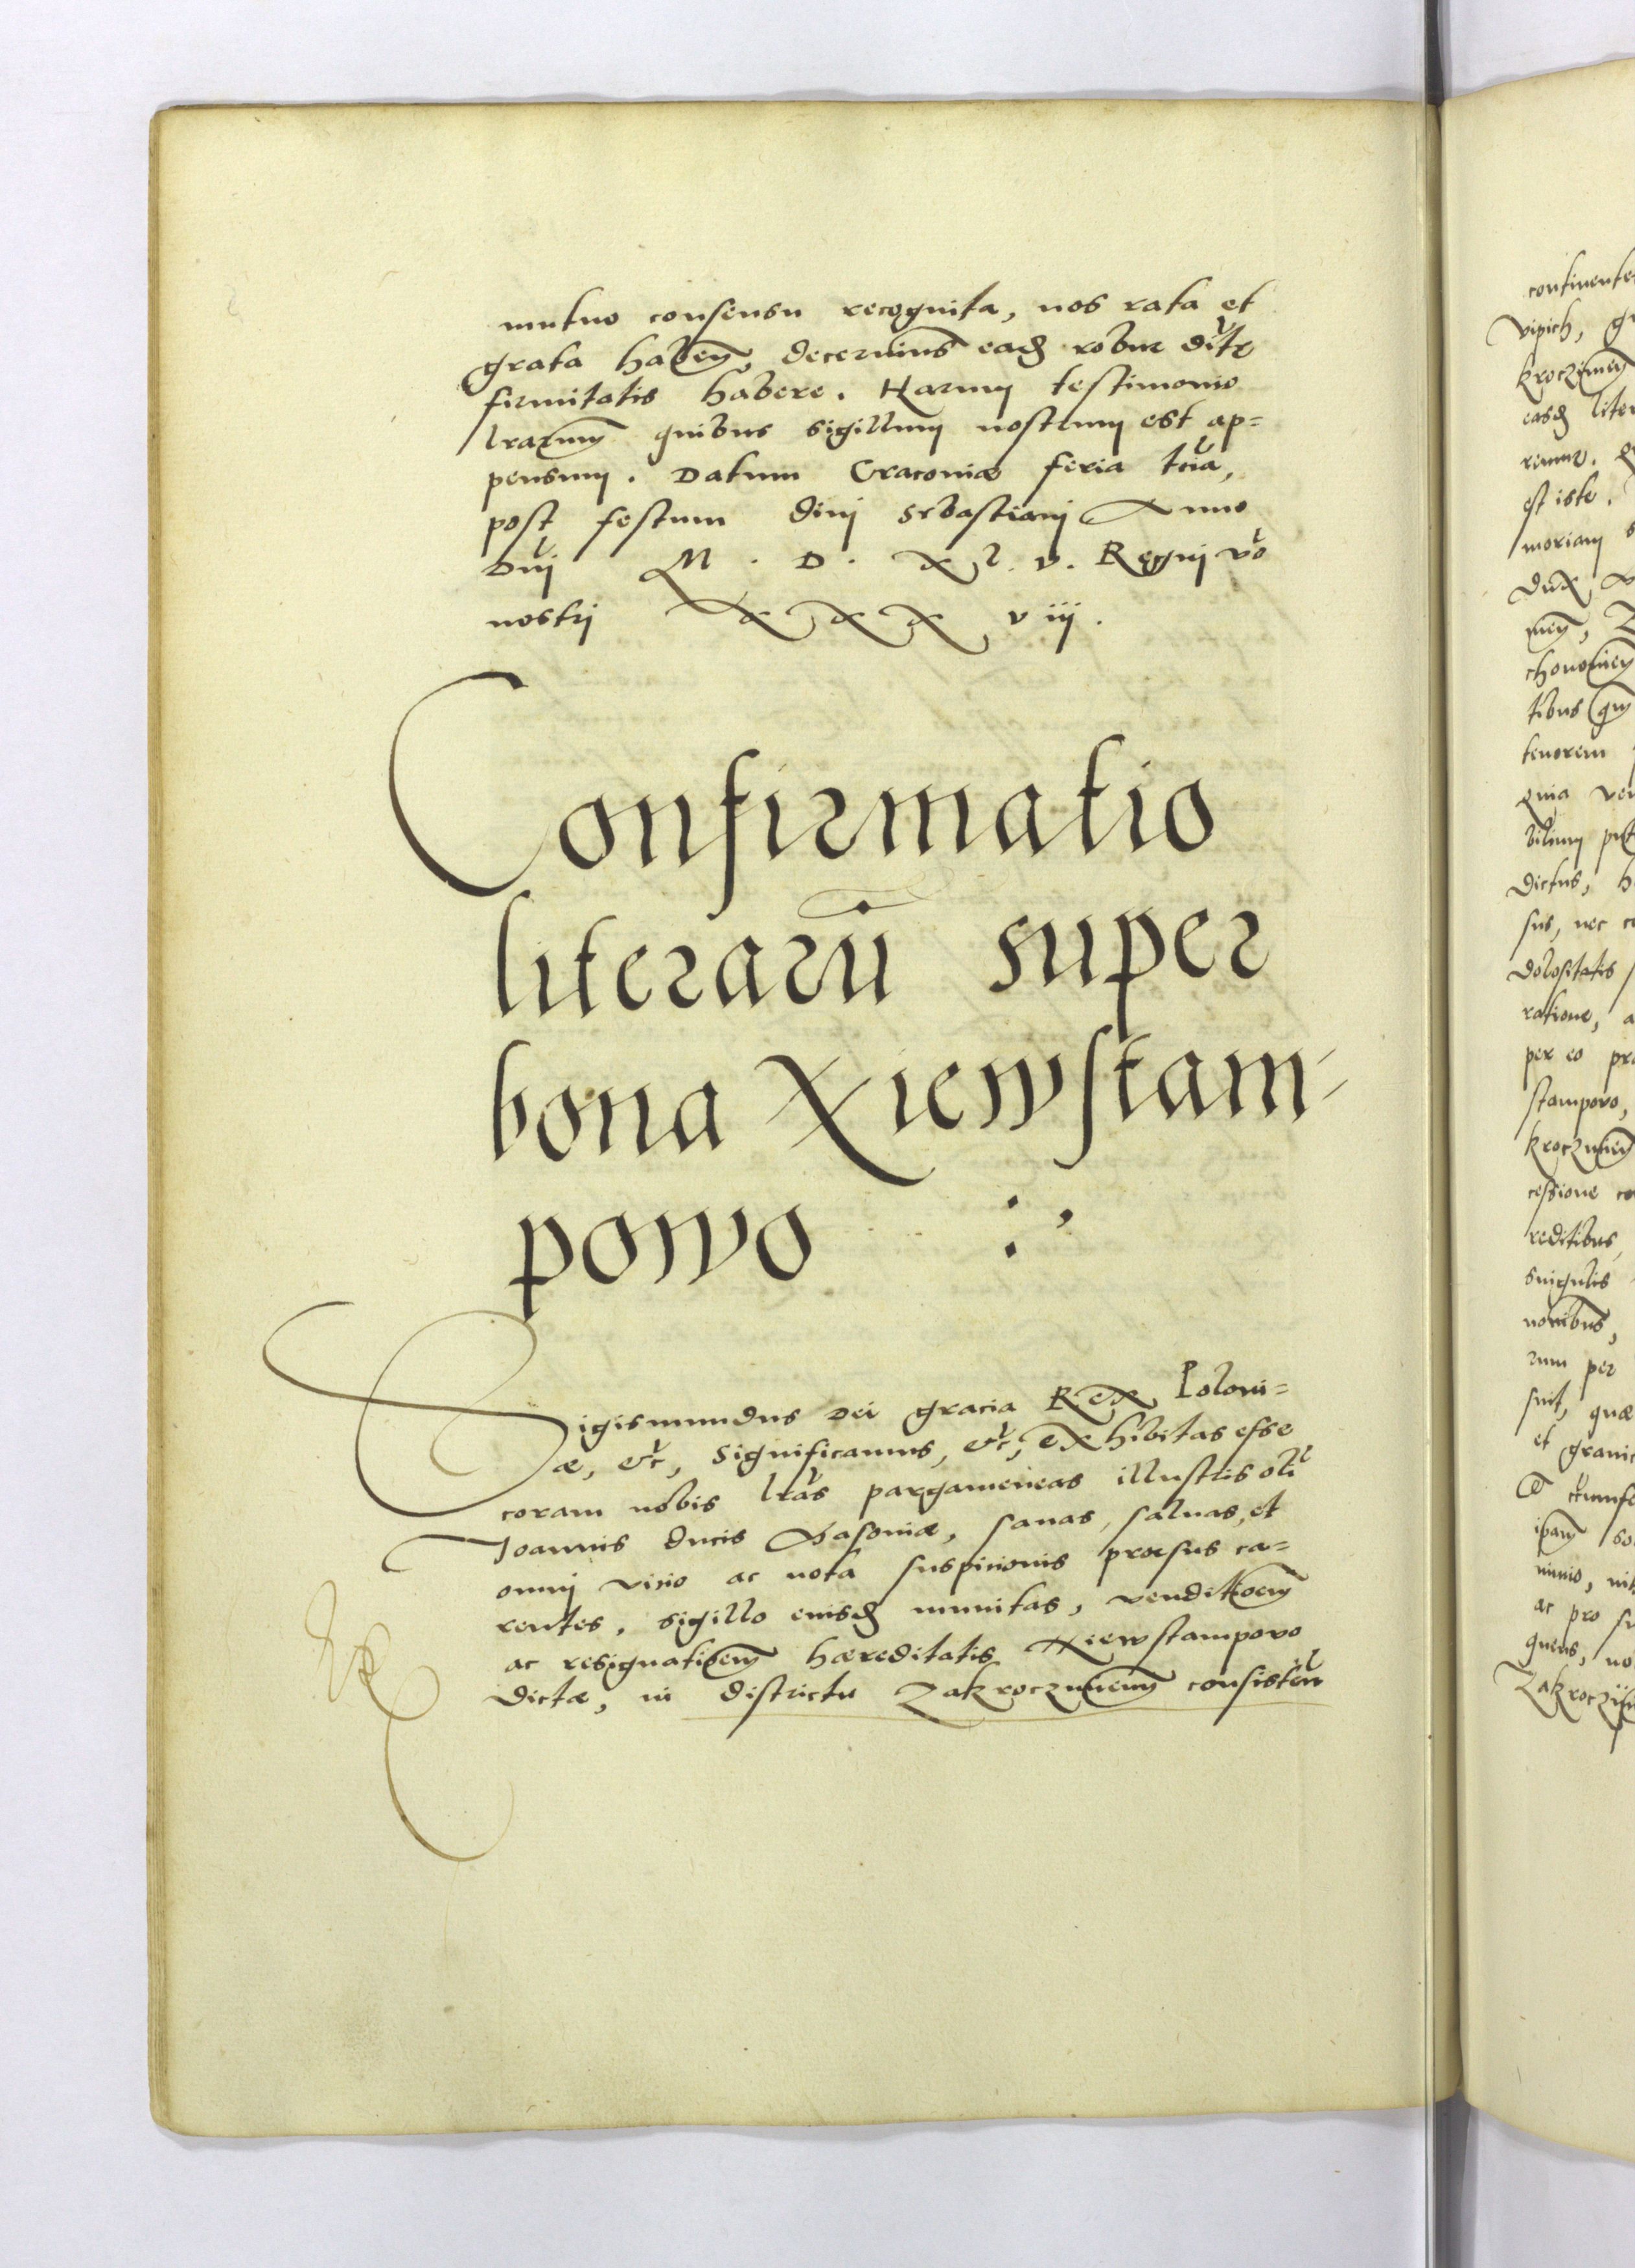 mutuo consensu recognita, nos rata et
grata haben̄, decernim̄s ead robur dite
firmitatis habere. Harum testimonio
lrarum quibus sigillum nostrum est ap=
pensum. Datum Cracoviæ feria tcia,
post festum divi Sebastiani Anno
Dni M. D. XL. V. Regni vo
nostri XXX viij.
Confirmatio
literarū super
bona Xiewstam=
powo
Sigismundus Dei gracia Rex Poloni=
æ, etc, significamus, etc, exhibitas esse
coram nobis lras pargameneas illustris oli
Joannis ducis Masoviæ, sanas, salvas, et
omni vicio ac nota suspicionis prorsus ca=
rentes, sigillo eiusd munitas, venditioem
ac resignatioem hæreditatis Xiewstampovo
dictæ, in districtu Zakroczimen̄ consisten̄
continente
vipich,
kroczimen̄
easd liter
est iste.
moriam
dux
tibus
tenorem
quia
dictus,
sus, nec
dolositatis
ratione,
per eo
stampovo,
kroczimen̄
cessione
reditibus,
singulis
rum per
sint, quæ
et
ac pro